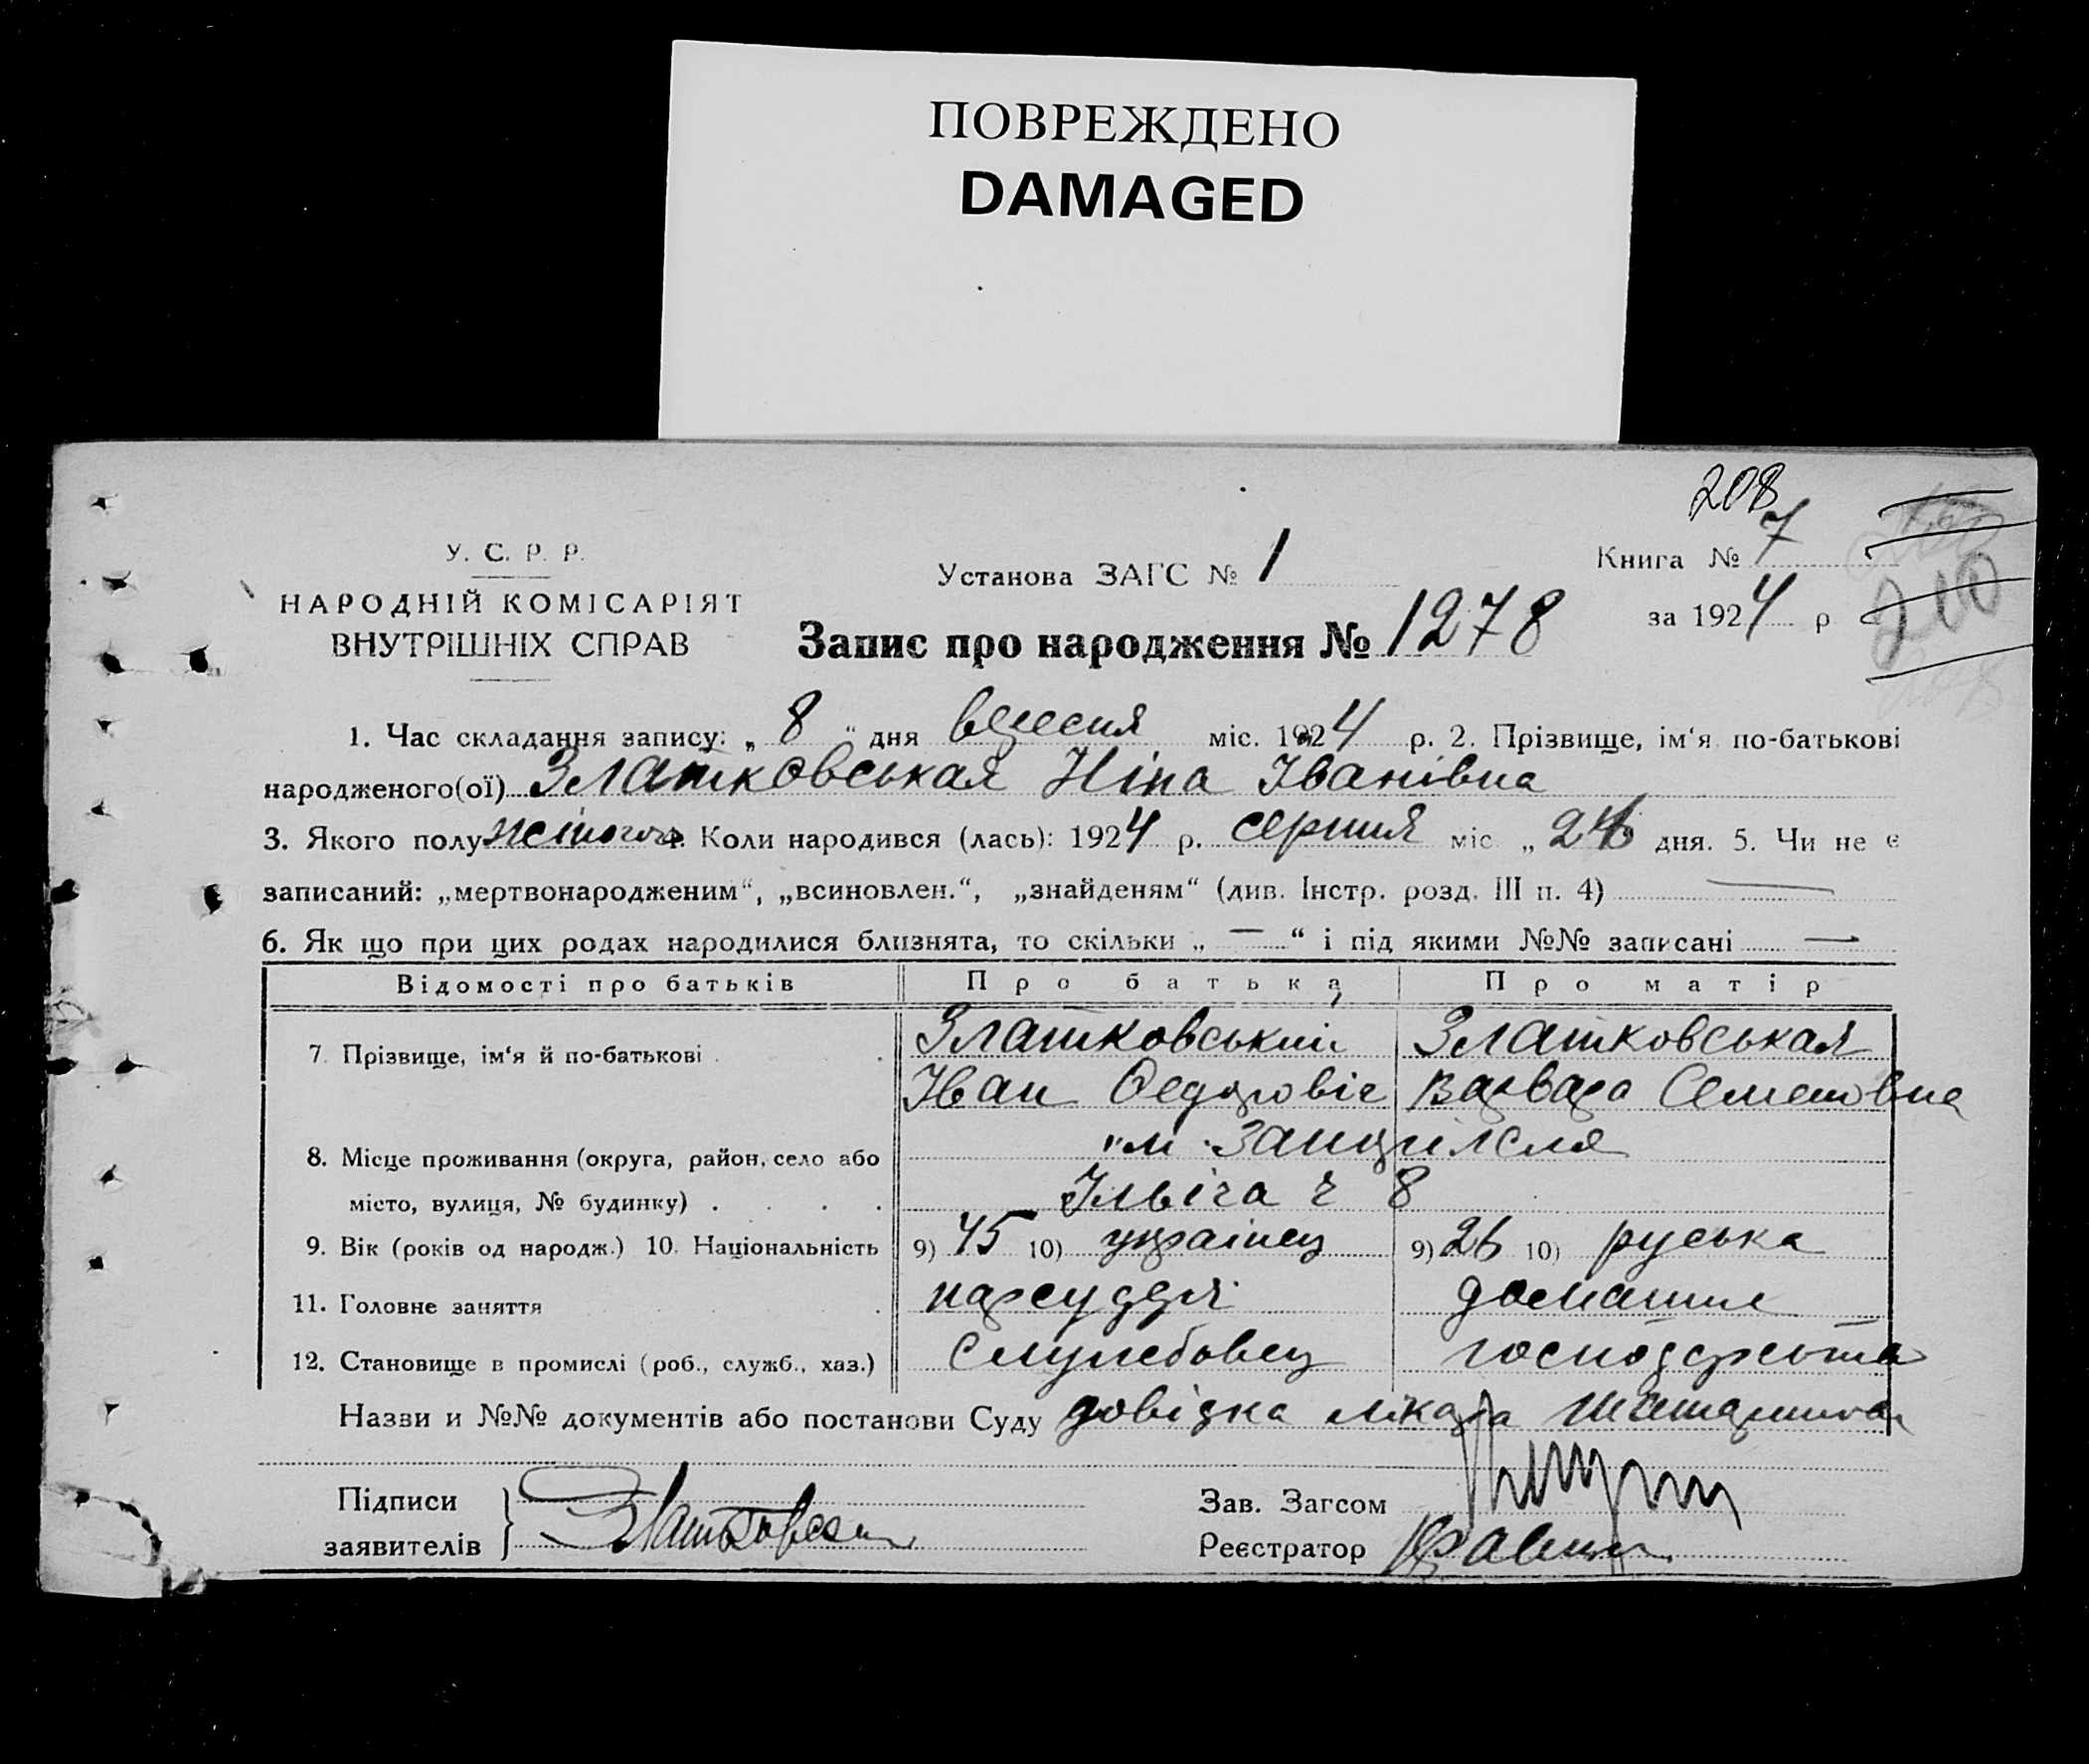 ПОВРЕЖДЕНО
DAMAGED
208
У. С. Р. Р.
НАРОДНІЙ КОМІСАРІЯТ
ВНУТРІШНІХ СПРАВ
Установа ЗАГС № 1
Книга № 7
за 1924 р
210
Запис про народження № 1278
1. Час складання запису: „ 8 “ дня вересня міс. 1924 р. 2. Прізвище, ім‘я по-батькові
народженого(ої) Златковськая Ніна Іванівна
3. Якого полу 4. Коли народився (лась): 1924 р. серпня міс „ дня. 5. Чи не є
записаний: „мертвонародженим“, „всиновлен.“, „знайденям“ (див. Інстр. розд. III п. 4) —
6. Як що при цих родах народилися близнята, то скільки „ — “ і під якими №№ записані —
Відомості про батьків Про батька Про матір
7. Прізвище, ім‘я й по-батькові Златковський Златковськая
Іван Федоровіч Варвара Семеновна
8. Місце проживання (округа, район, село або м.
місто, вулиця, № будинку) Ільіча ч 8
9. Вік (років од народж.) 10. Національність 9) 45 10) українец 9) 26 10) руська
11. Головне заняття нарсуддя домашнє
12. Становище в промислі (роб., служб., хаз.) Службовец господарство
Назви и №№ документів або постанови Суду довідка лікаря
Підписи
заявителів
Зав. Загсом
Реєстратор